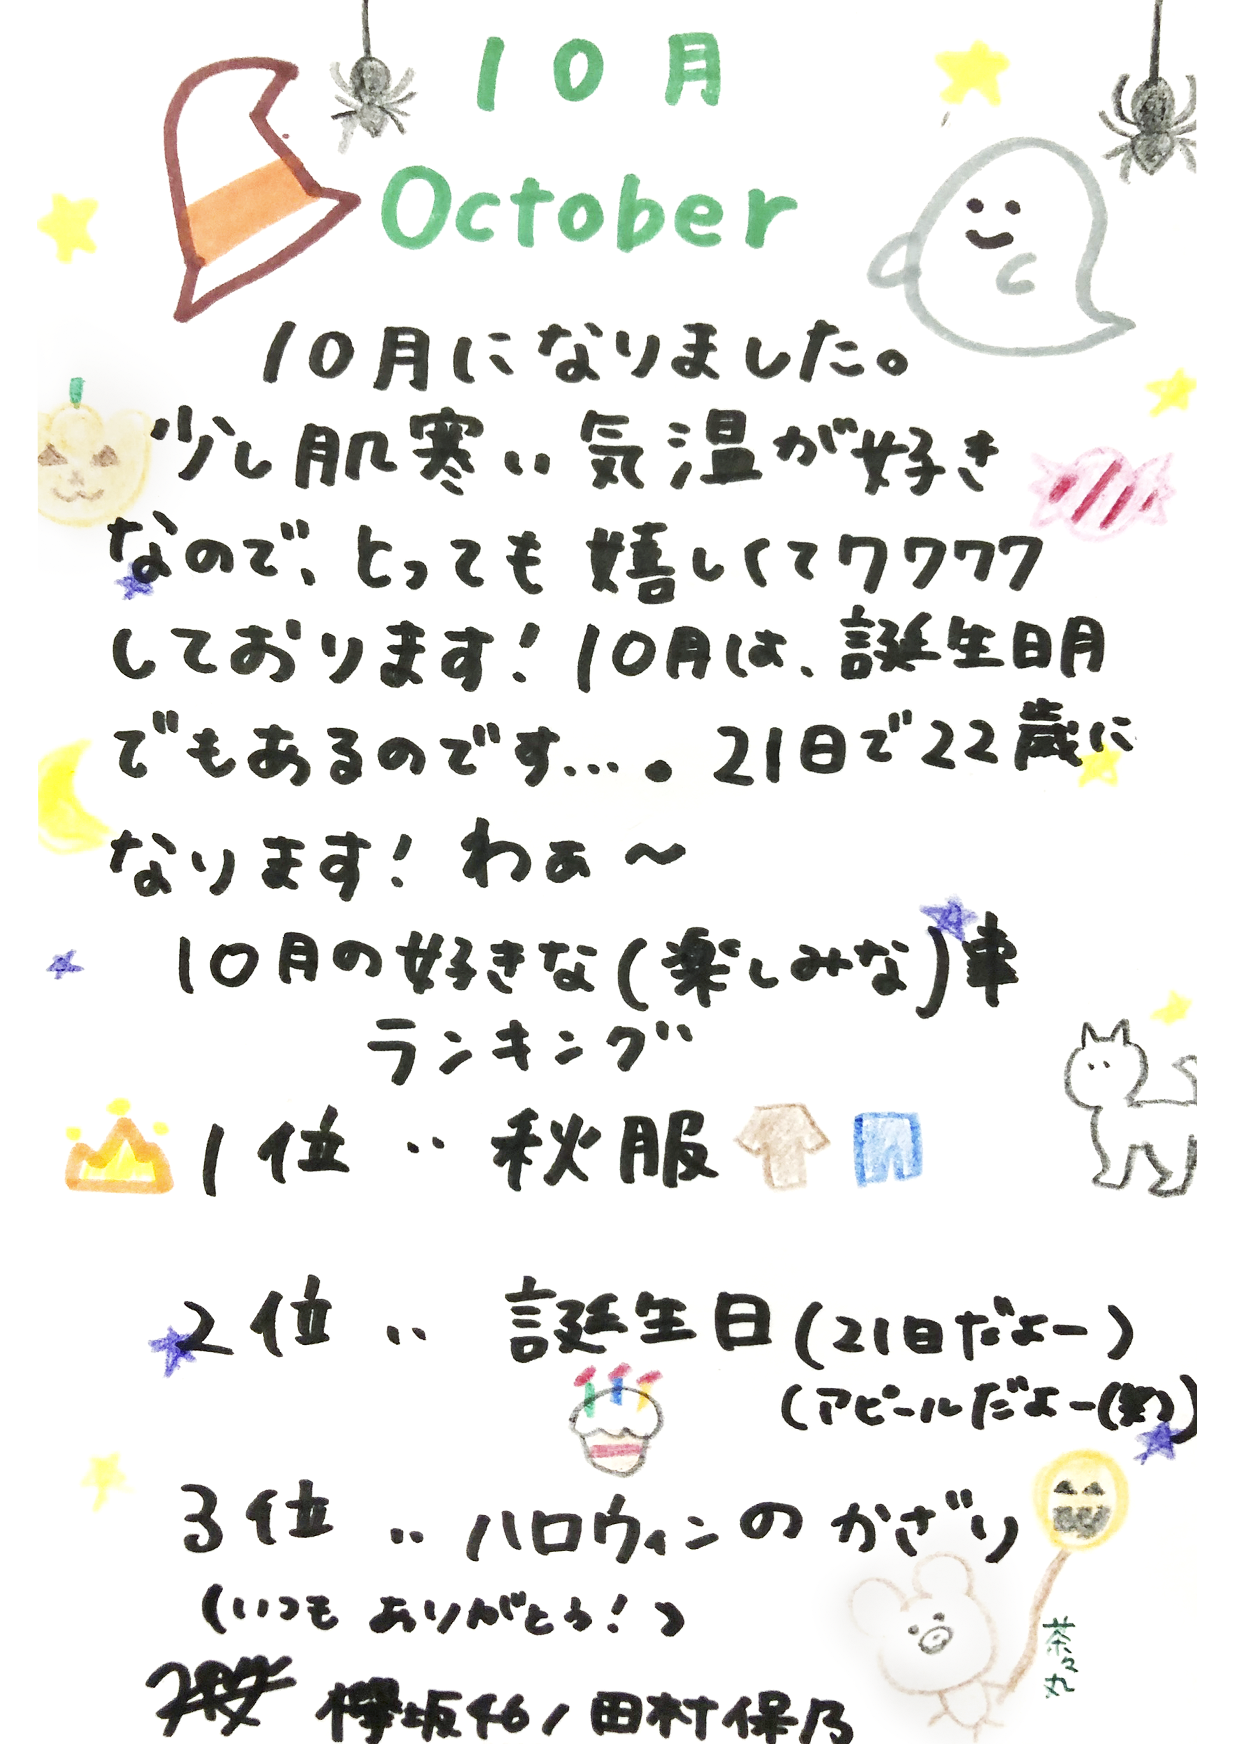 10月
October
10月になりました。
少し肌寒い気温が好き
なので、とっても嬉しくてワクワク
しております!10月は、誕生日月
でもあるのです…。21日で22歳に
なります!わぁ〜
10月の好きな(楽しみな)事
ランキング
1位‥秋服
2位‥誕生日(21日だよー)
(アピールだよー(笑))
3位‥ハロウィンのかざり
(いつもありがとう!)
茶々丸
欅坂46/田村保乃